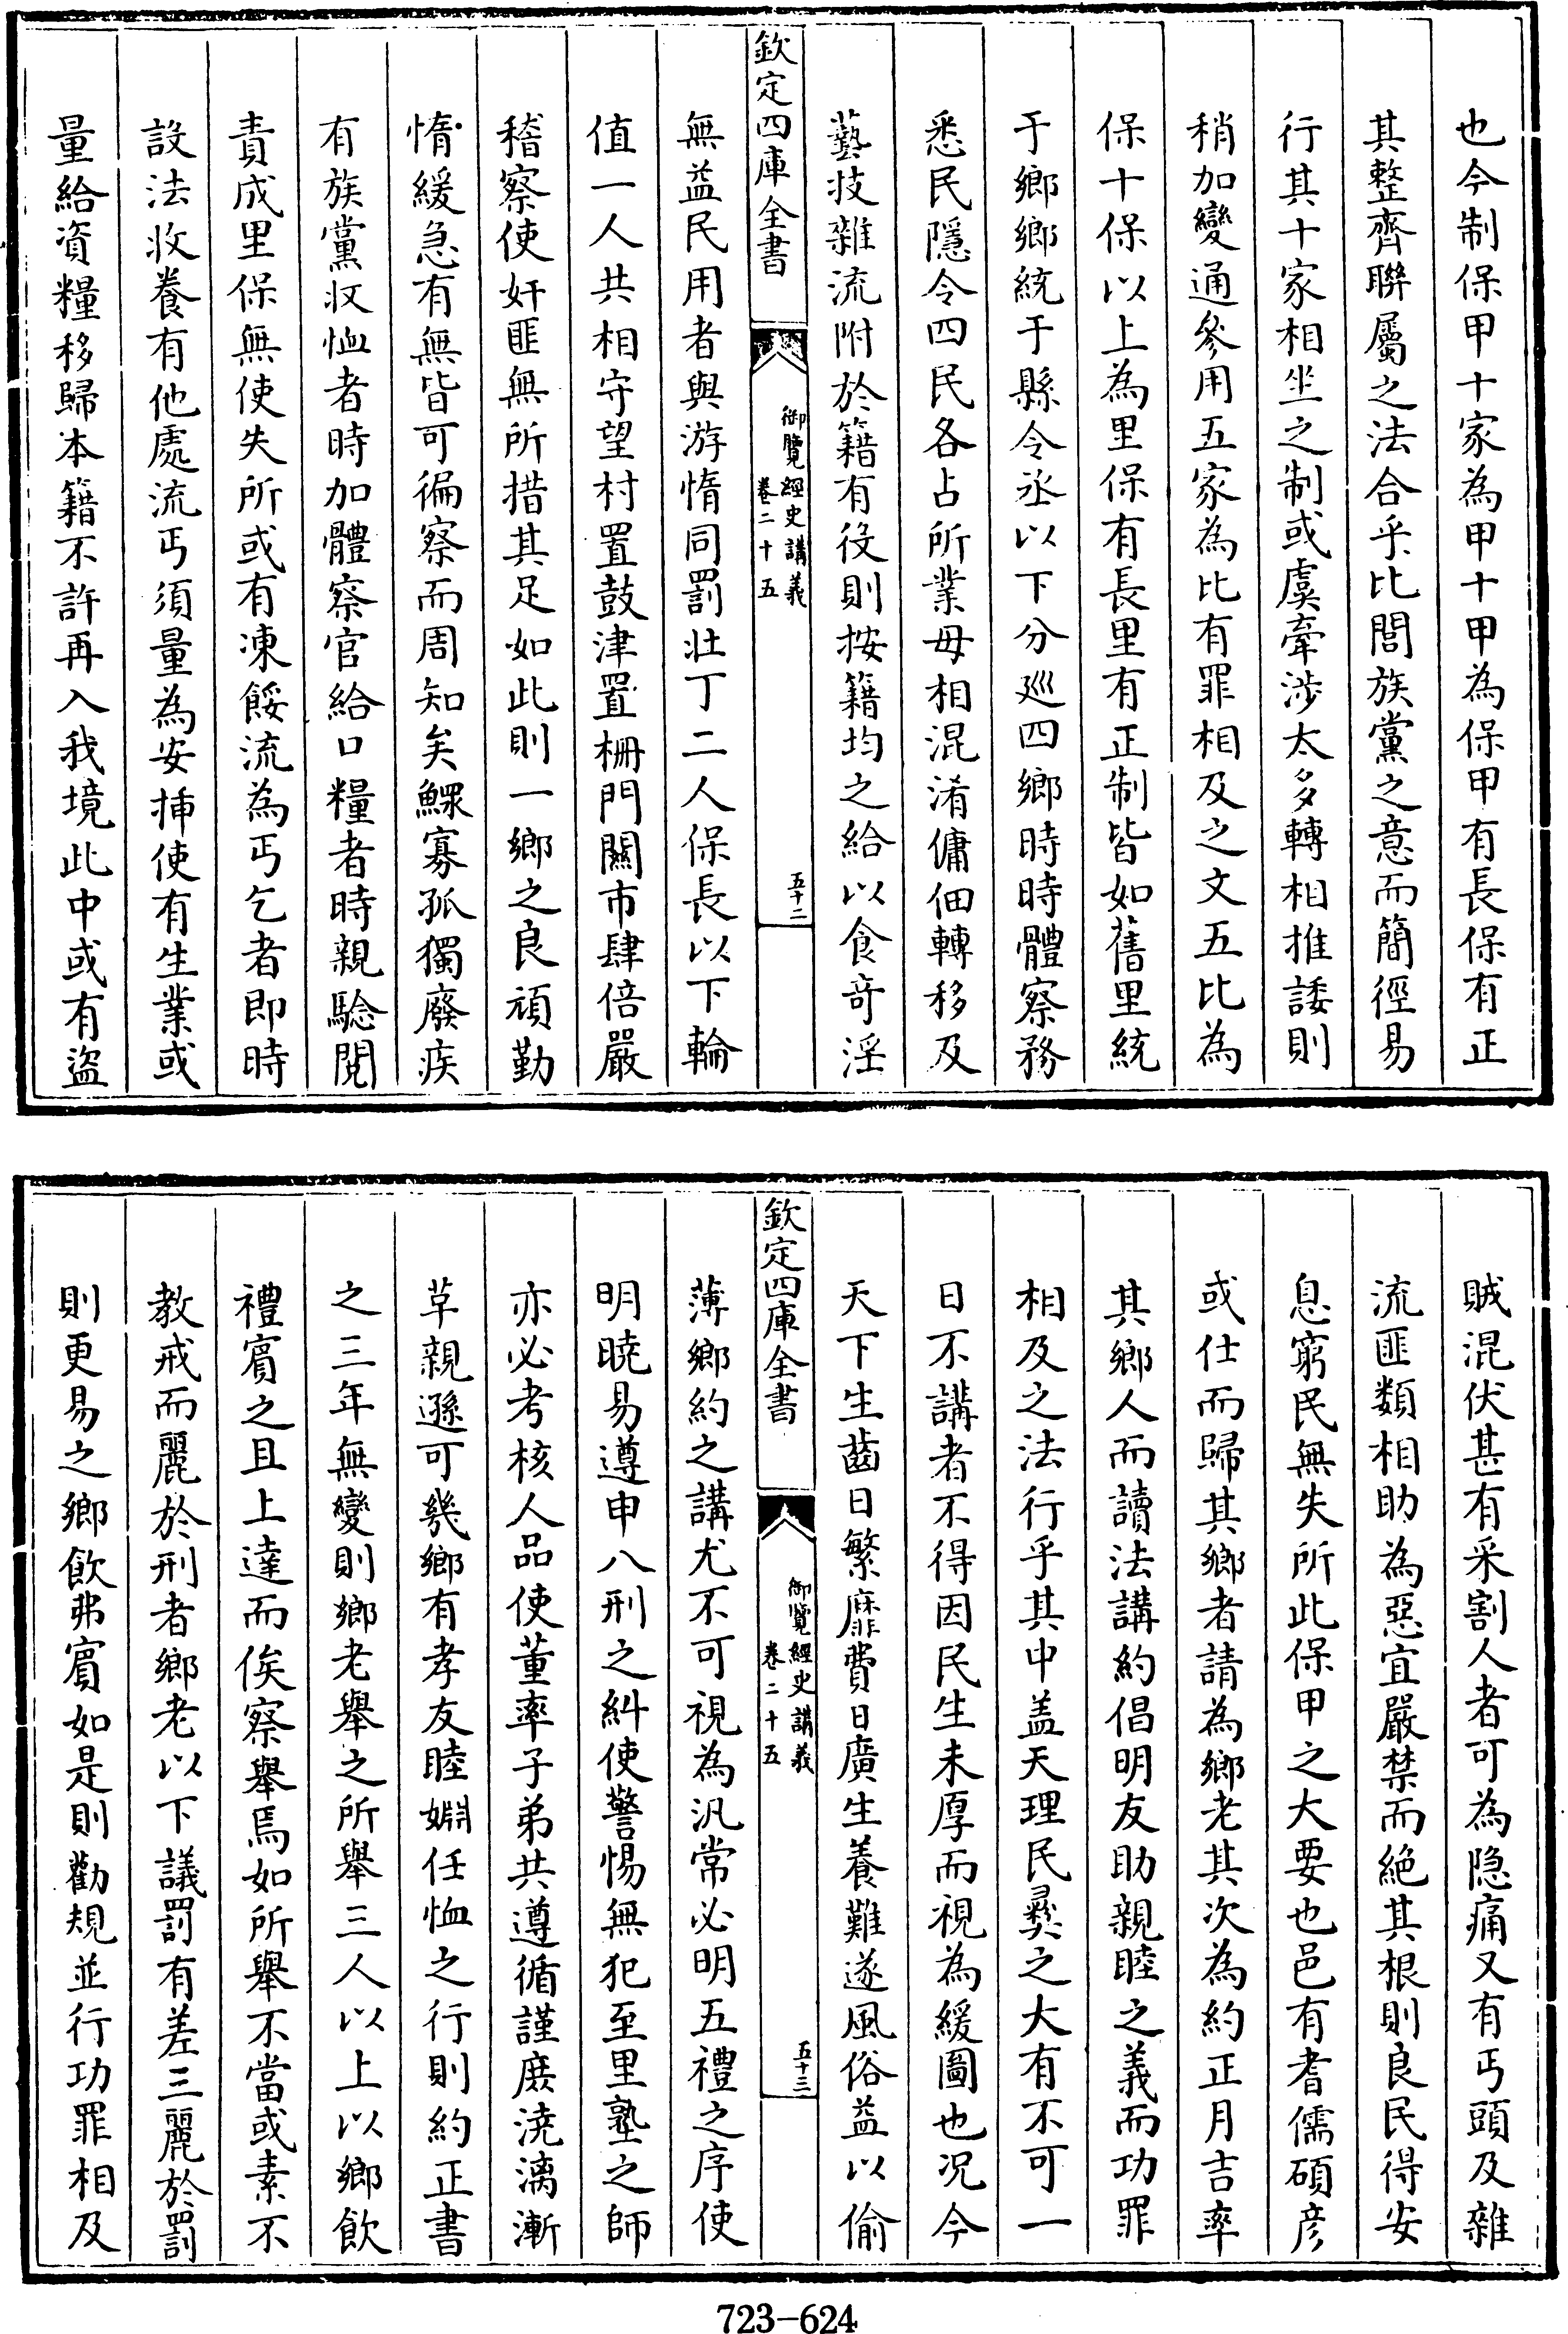 也今制保甲十家為甲十甲為保甲有長保有正
其整齊聯屬之法合乎比閭族黨之意而簡徑易
行其十家相坐之制或虞牽涉太多轉相推諉則
稍加變通參用五家為比有罪相及之文五比為
保十保以上為里保有長里有正制皆如舊里統
于鄉鄉統于縣令丞以下分廵四鄉時時體察務
悉民隱令四民各占所業毋相混淆傭佃轉移及
藝技雜流附於籍有役則按籍均之給以食竒淫
欽定四庫全書
御覽經史講義
卷二十五
五十二
無益民用者與游惰同罰壯丁二人保長以下輪
值一人共相守望村置鼓津置柵門關市肆倍嚴
稽察使奸匪無所措其足如此則一鄉之良頑勤
惰緩急有無皆可徧察而周知矣鰥寡孤獨廢疾
有族黨收恤者時加體察官給口糧者時親驗閱
責成里保無使失所或有凍餒流為丐乞者即時
設法收養有他處流丐須量為安揷使有生業或
量給資糧移歸本籍不許再入我境此中或有盜
賊混伏甚有采割人者可為隐痛又有丐頭及雜
流匪類相助為惡宜嚴禁而絶其根則良民得安
息窮民無失所此保甲之大要也邑有耆儒碩彦
或仕而歸其鄉者請為鄉老其次為約正月吉率
其鄉人而讀法講約倡明友助親睦之義而功罪
相及之法行乎其中盖天理民彛之大有不可一
日不講者不得因民生未厚而視為緩圖也况今
天下生齒日繁靡費日廣生養難遂風俗益以偷
欽定四庫全書
御覽經史講義
卷二十五
五十三
薄鄉約之講尤不可視為汎常必明五禮之序使
明曉易遵申八刑之糾使警惕無犯至里塾之師
亦必考核人品使董率子弟共遵循謹庶澆漓漸
革親遜可幾鄉有孝友睦婣任恤之行則約正書
之三年無變則鄉老舉之所舉三人以上以鄉飲
禮賓之且上達而俟察舉焉如所舉不當或素不
教戒而麗於刑者鄉老以下議罰有差三麗於罰
則更易之鄉飲弗賓如是則勸規並行功罪相及
723-624